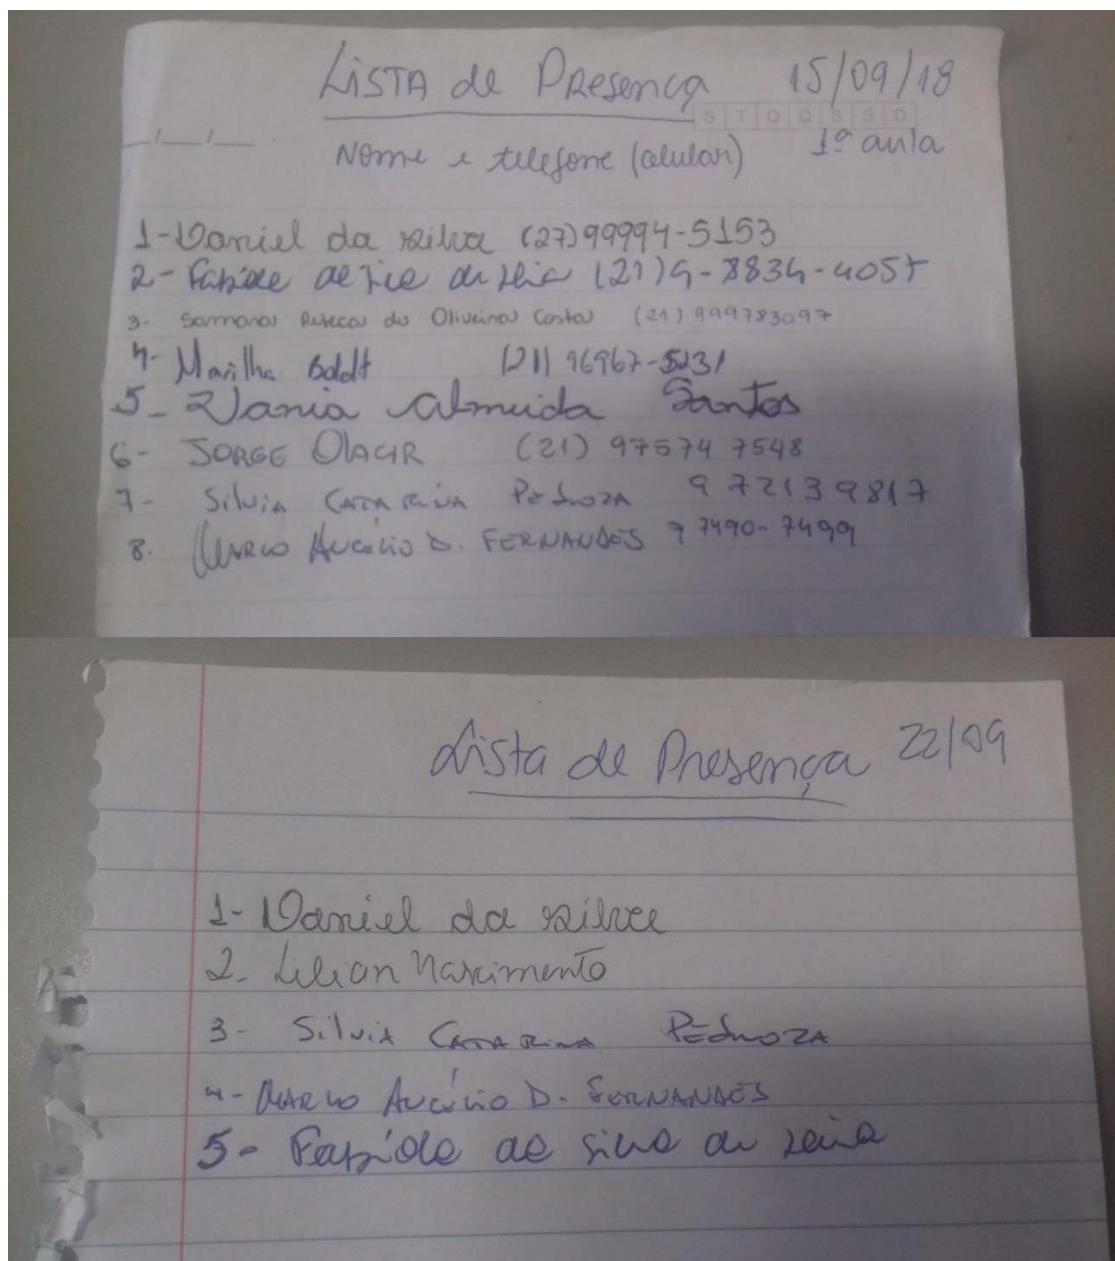 Lista de Presença 15/09/18
S T Q Q S S D
Nome e telefone (celular) 1ª aula
1- Daniel da Silva (27) 99994-5153
2- (21) 9-8834-4057
3. Samara Rebeca de Oliveira Costa (21) 999783097
4- Marilha Boldt (21) 96967-5231
5- Vania Almeida Santos
6- JORGE OLACIR (21) 97574 7548
7- Silvia CATARINA PEDROZA 972139817
8. MARCO AURÉLIO D. FERNANDES 97490-7499
Lista de Presença 22/09
1- Daniel da Silva
2. Lilian Nascimento
3- Silvia CATARINA PEDROZA
4- MARCO AURÉLIO D. FERNANDES
5- da